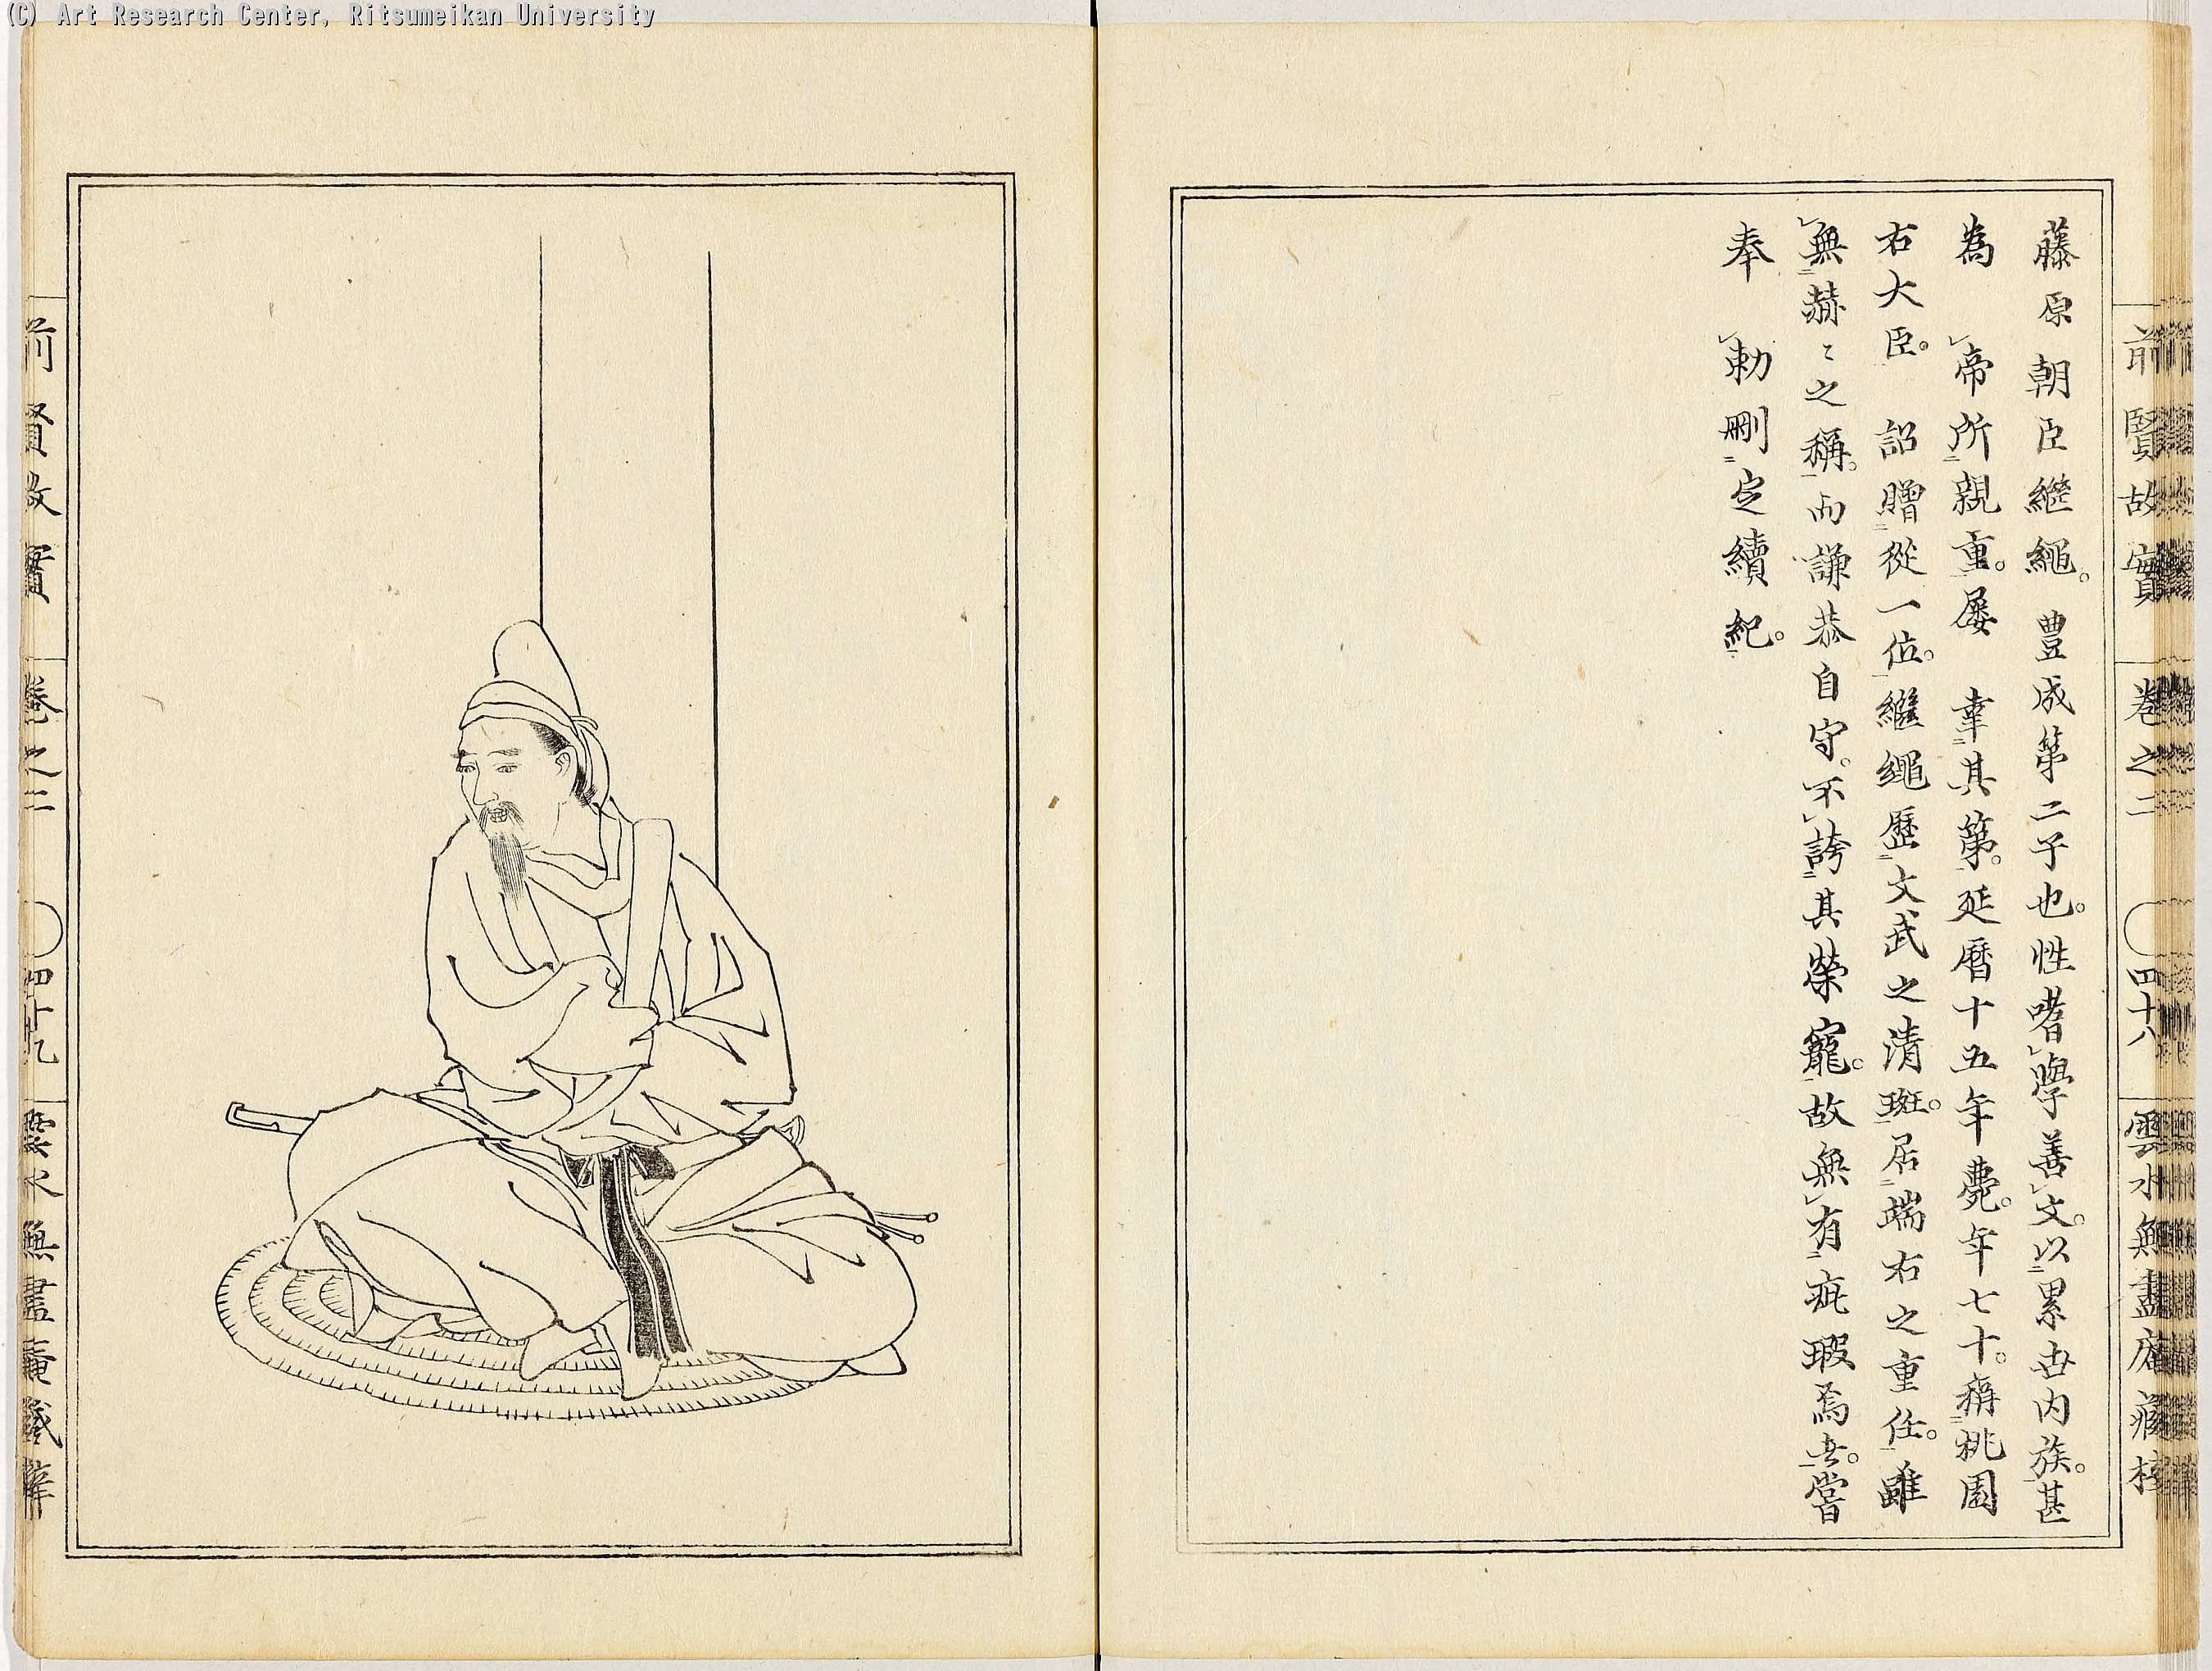 (C) Art Research Center, Ritsumeikan University
前賢故實 卷之二 四十八 雲水無盡庵
藤原朝臣繼繩。豊成第二子也。性嗜學善文。以累世内族。甚
為 帝所親重。屡 幸其第。延曆十五年薨。年七十。稱桃園
右大臣。 詔贈從一位。繼繩歷文武之清班。居端右之重任。雖
無赫〻之稱。而謙恭自守。不誇其榮寵。故無有疵瑕焉。嘗
奉 勅刪定續紀。
前賢故實 卷之二 四十九 雲水無盡庵藏梓